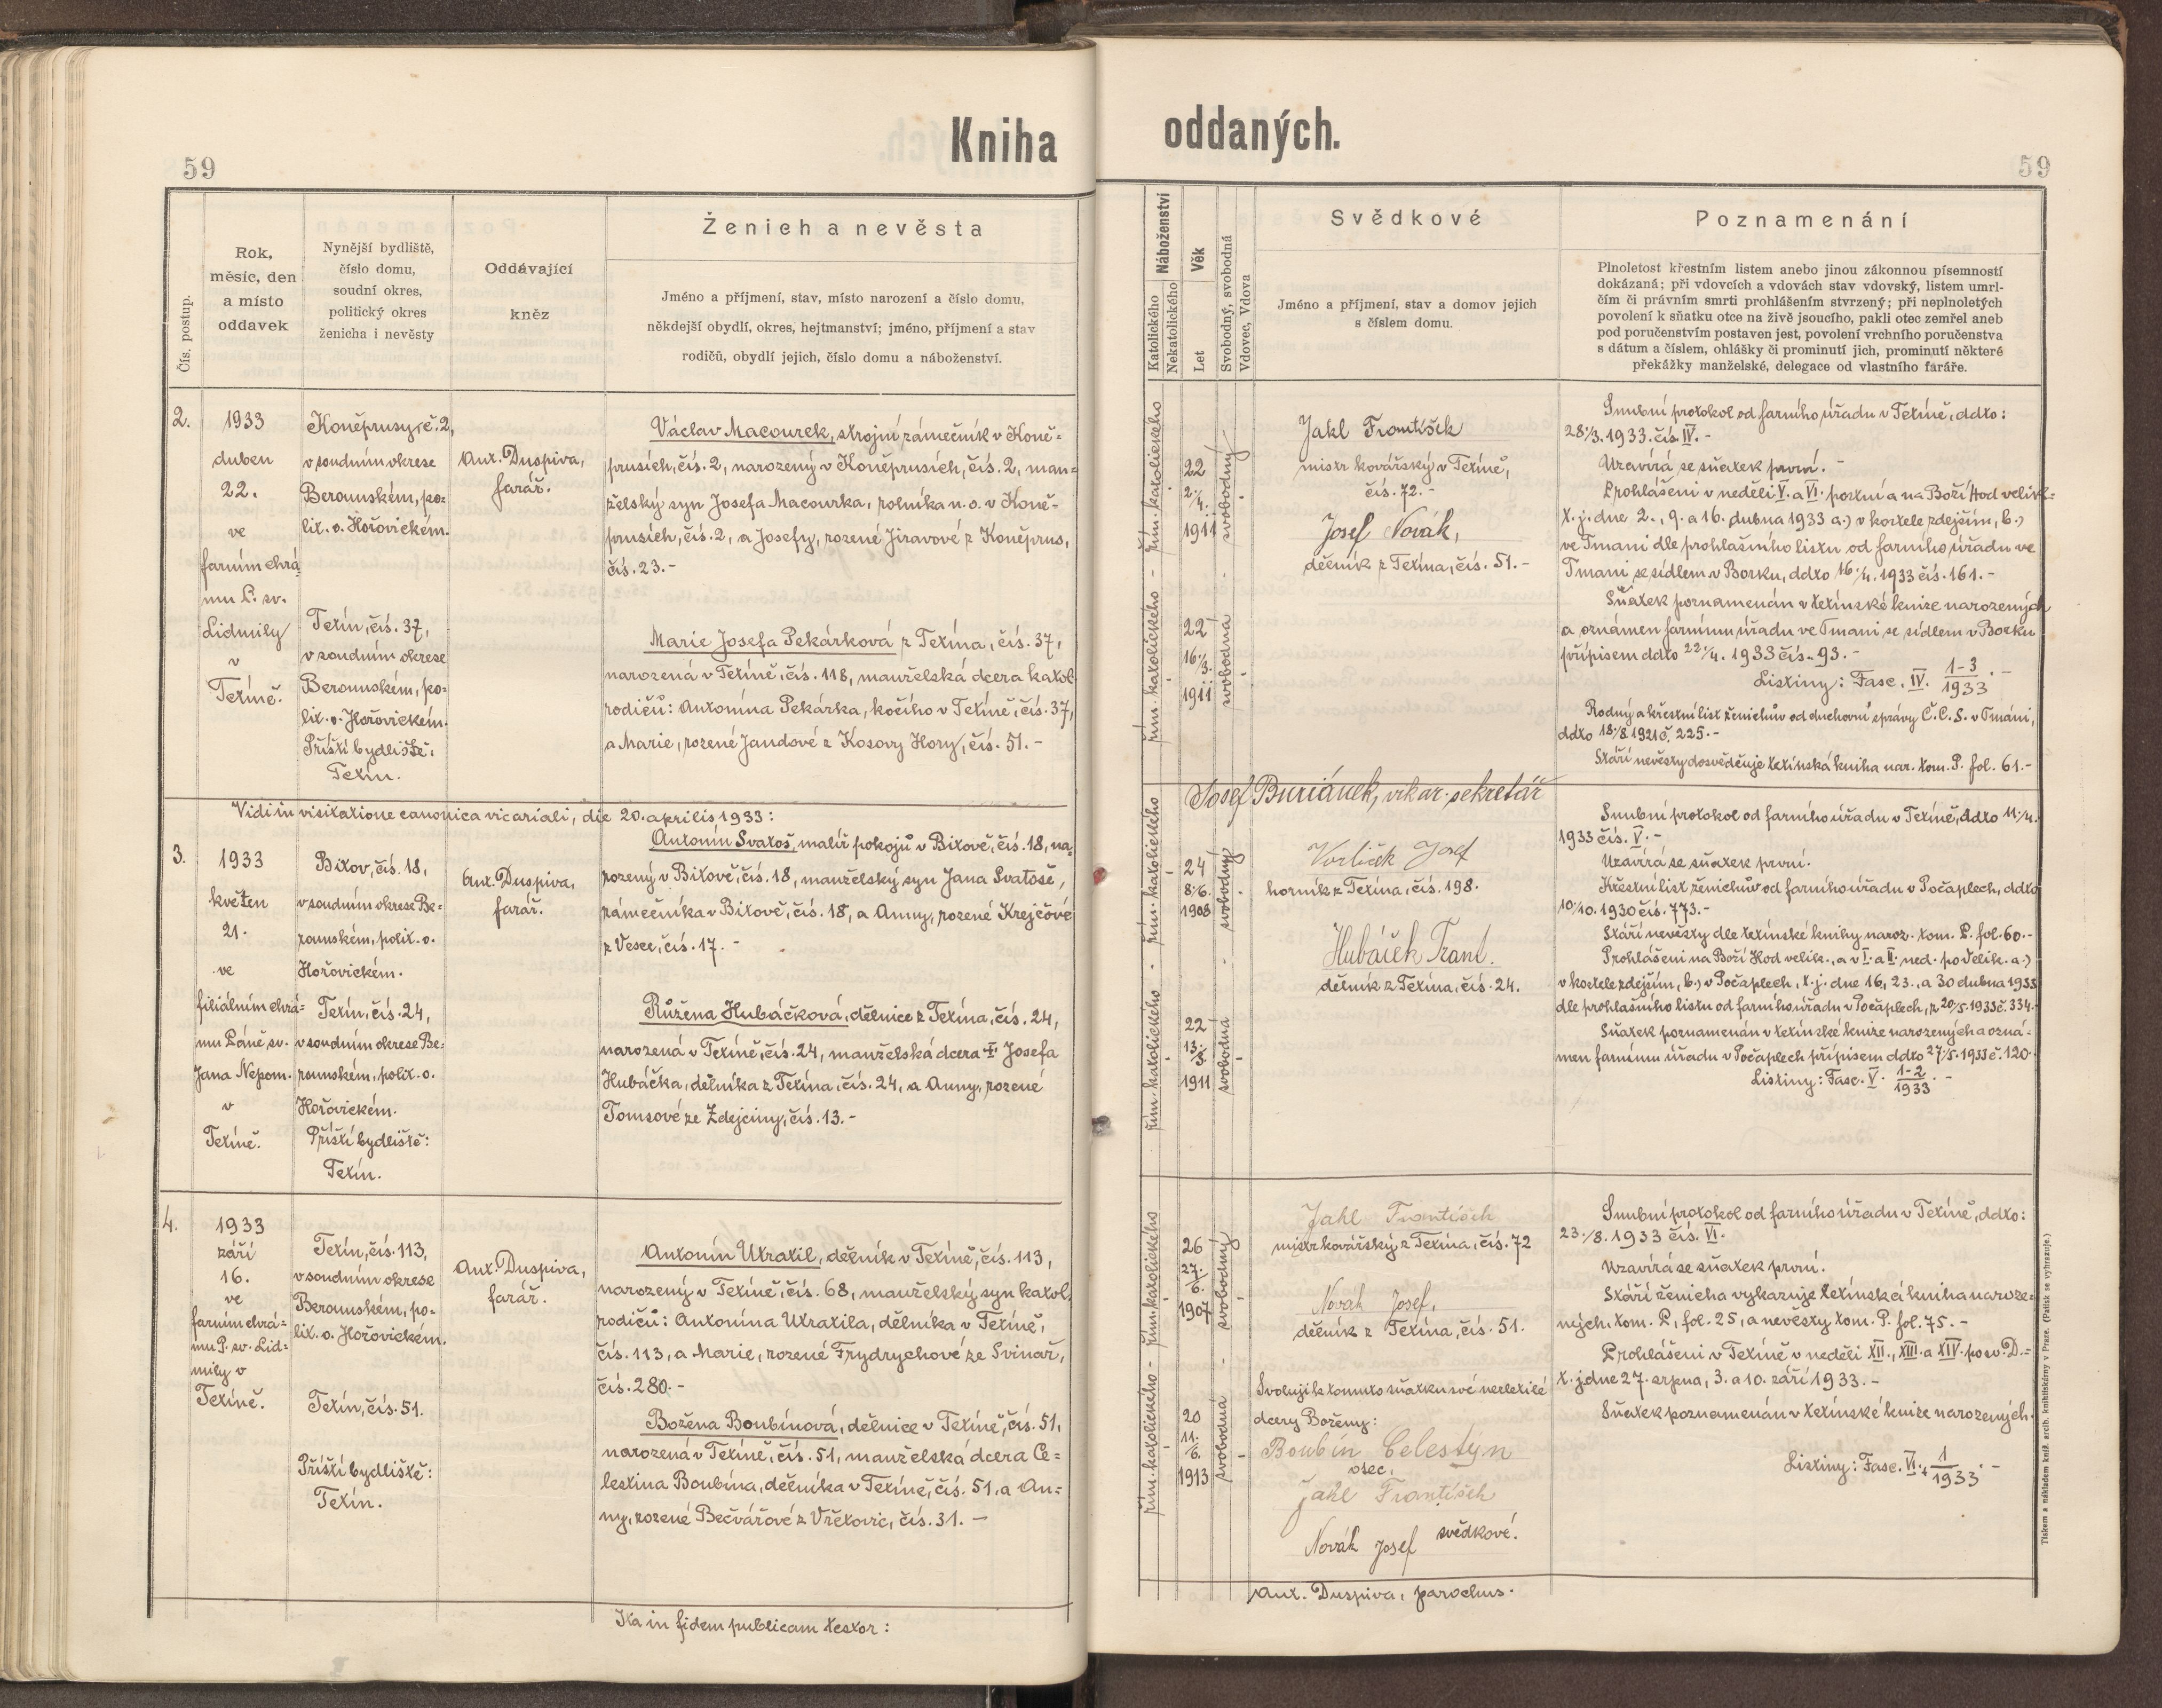 Kniha oddaných.
59
59
Čís. postup.
Rok,
měsíc, den
a místo
oddavek
Nynější bydliště,
číslo domu,
soudní okres,
politický okres
ženicha i nevěsty
Oddávající
kněz
Ženich a nevěsta
Jméno a příjmení, stav, místo narození a číslo domu,
někdejší obydlí, okres, hejtmanství; jméno, příjmení a stav
rodičů, obydlí jejich, číslo domu a náboženství.
Náboženství
Katolického
Nekatolického
Věk
Let
Svobodný, svobodná
Vdovec, Vdova
Svědkové
Jméno a příjmení, stav a domov jejich
s číslem domu.
Poznamenání
Plnoletost křestním listem anebo jinou zákonnou písemností
dokázaná; při vdovcích a vdovách stav vdovský, listem umrl-
čím či právním smrti prohlášením stvrzený; při neplnoletých
povolení k sňatku otce na živě jsoucího, pakli otec zemřel aneb
pod poručenstvím postaven jest, povolení vrchního poručenstva
s dátum a číslem, ohlášky či prominutí jich, prominutí některé
překážky manželské, delegace od vlastního faráře.
2.
1933
duben
22.
ve
farním chrá-
mu P. sv.
Lidmily
v
Tetíně.
Koněprusy, č. 2,
v soudním okrese
Berounském, po-
lit. o. Hořovickém.
Tetín, čís. 37,
v soudním okrese
Berounském, po-
lit. o. Hořovickém.
Příští bydliště:
Tetín.
Ant. Duspiva,
farář.
Václav Macourek, strojní zámečník v Koně-
prusích, čís. 2, narozený v Koněprusích, čís. 2, man-
želský syn Josefa Macourka, rolníka n. o. v Koně-
prusích, čís. 2, a Josefy, rozené Jiravové z Koněprus,
čís. 23. -
Marie Josefa Pekárková z Tetína, čís. 37,
narozená v Tetíně, čís. 118, manželská dcera katol.
rodičů: Antonína Pekárka, kočího v Tetíně, čís. 37,
a Marie, rozené Jandové z Kosovy Hory, čís. 51. -
řím. katolického - řím. katolického
22
2./4.
1911
svobodný
22
16./3.
1911
svobodná
Jakl František
mistr kovářský v Tetíně,
čís. 72. -
Josef Novák,
dělník z Tetína, čís. 51. -
Snubní protokol od farního úřadu v Tetíně, ddto:
28./3. 1933. čís. IV. -
Uzavírá se sňatek první. -
Prohlášeni v neděli V. a VI. postní a na Boží Hod velik.
t. j. dne 2., 9. a 16. dubna 1933 a.) v kostele zdejším, b.)
ve Tmani dle prohlašního listu od farního úřadu ve
Tmani se sídlem v Borku, ddto 16./4. 1933 čís. 161. -
Sňatek poznamenán v tetínské knize narozených
a oznámen farnímu úřadu ve Tmani se sídlem v Borku
přípisem ddto 22./4. 1933 čís. 93. -
Listiny: Fasc. IV. 1-3/1933. -
Rodný a křestní list ženichův od duchovní správy Č. C. S. v Tmáni,
ddto 18./8. 1921 č. 225. -
Stáří nevěsty dosvědčuje tetínská kniha nar. tom. P. fol. 61. -
Vidi in visitatione canonica vicariali, die 20. aprilis 1933:
Josef Buriánek, vikar. sekretář
3.
1933
květen
21.
ve
filiálním chrá-
mu Páně sv.
Jana Nepom.
v
Tetíně.
Bitov, čís. 18,
v soudním okrese Be-
rounském, polit. o.
Hořovickém.
Tetín, čís. 24,
v soudním okrese Be-
rounském, polit. o.
Hořovickém.
Příští bydliště:
Tetín.
Ant. Duspiva,
farář.
Antonín Svatoš, malíř pokojů v Bitově, čís. 18, na-
rozený v Bitově, čís. 18, manželský syn Jana Svatoše,
zámečníka v Bitově, čís. 18, a Anny, rozené Krejčové
z Vesce, čís. 17. -
Růžena Hubáčková, dělnice z Tetína, čís. 24,
narozená v Tetíně, čís. 24, manželská dcera † Josefa
Hubáčka, dělníka z Tetína, čís. 24, a Anny, rozené
Tomsové ze Zdejciny, čís. 13. -
řím. katolického - řím. katolického
24
8./6.
1908
svobodný
22
13./3.
1911
svobodná
Vorlíček Josef
horník z Tetína, čís. 198.
Hubáček Frant.
dělník z Tetína, čís. 24.
Snubní protokol od farního úřadu v Tetíně, ddto 11./4.
1933 čís. V. -
Uzavírá se sňatek první.
Křestní list ženichův od farního úřadu v Počaplech, ddto
10./10. 1930 čís. 773. -
Stáří nevěsty dle tetínské knihy naroz. tom. P. fol. 60. -
Prohlášeni na Boží Hod velik., a v I. a II. ned. po Velik. a.)
v kostele zdejším, b.) v Počaplech, t. j. dne 16, 23., a 30 dubna 1933
dle prohlašního listu od farního úřadu v Počaplech, z 20./5. 1933 č. 334. -
Sňatek poznamenán v tetínské knize narozených a ozná-
men farnímu úřadu v Počaplech přípisem ddto 27./5. 1933 č. 120.
Listiny: Fasc. V. 1-2/1933. -
4.
1933
září
16.
ve
farním chrá-
mu P. sv. Lid-
mily v
Tetíně.
Tetín, čís. 113,
v soudním okrese
Berounském, po-
lit. o. Hořovickém.
Tetín, čís. 51.
Příští bydliště:
Tetín.
Ant. Duspiva,
farář.
Antonín Utratil, dělník v Tetíně, čís. 113,
narozený v Tetíně, čís. 68, manželský syn katol.
rodičů: Antonína Utratila, dělníka v Tetíně,
čís. 113, a Marie, rozené Frydrychové ze Svinař,
čís. 280. -
Božena Boubínová, dělnice v Tetíně, čís. 51,
narozená v Tetíně, čís. 51, manželská dcera Ce-
lestina Boubína, dělníka v Tetíně, čís. 51, a An-
ny, rozené Bečvářové z Všetovic, čís. 31. -
řím. katolického - řím. katolického
26
27./6.
1907
svobodný
20
11./6.
1913
svobodná
Jakl František
mistr kovářský z Tetína, čís. 72
Novák Josef,
dělník z Tetína, čís. 51.
Svoluji k tomuto sňatku své nezletilé
dcery Boženy:
Boubín Celestýn
otec,
Jakl František
Novák Josef svědkové.
Snubní protokol od farního úřadu v Tetíně, ddto:
23./8. 1933 čís. VI.
Uzavírá se sňatek první.
Stáří ženicha vykazuje tetínská kniha naroze-
ných. tom. P, fol. 25, a nevěsty tom. P. fol. 75. -
Prohlášeni v Tetíně v neděli XII., XIII. a XIV. po sv. D. -
t. j. dne 27. srpna, 3. a 10. září 1933. -
Sňatek poznamenán v tetínské knize narozených.
Listiny: Fasc. VI. 1/1933. -
Ita in fidem publicam testor:
Ant. Duspiva, parochus.
Tiskem a nákladem kníž. arcib. knihtiskárny v Praze. (Patisk se vyhrazuje.)